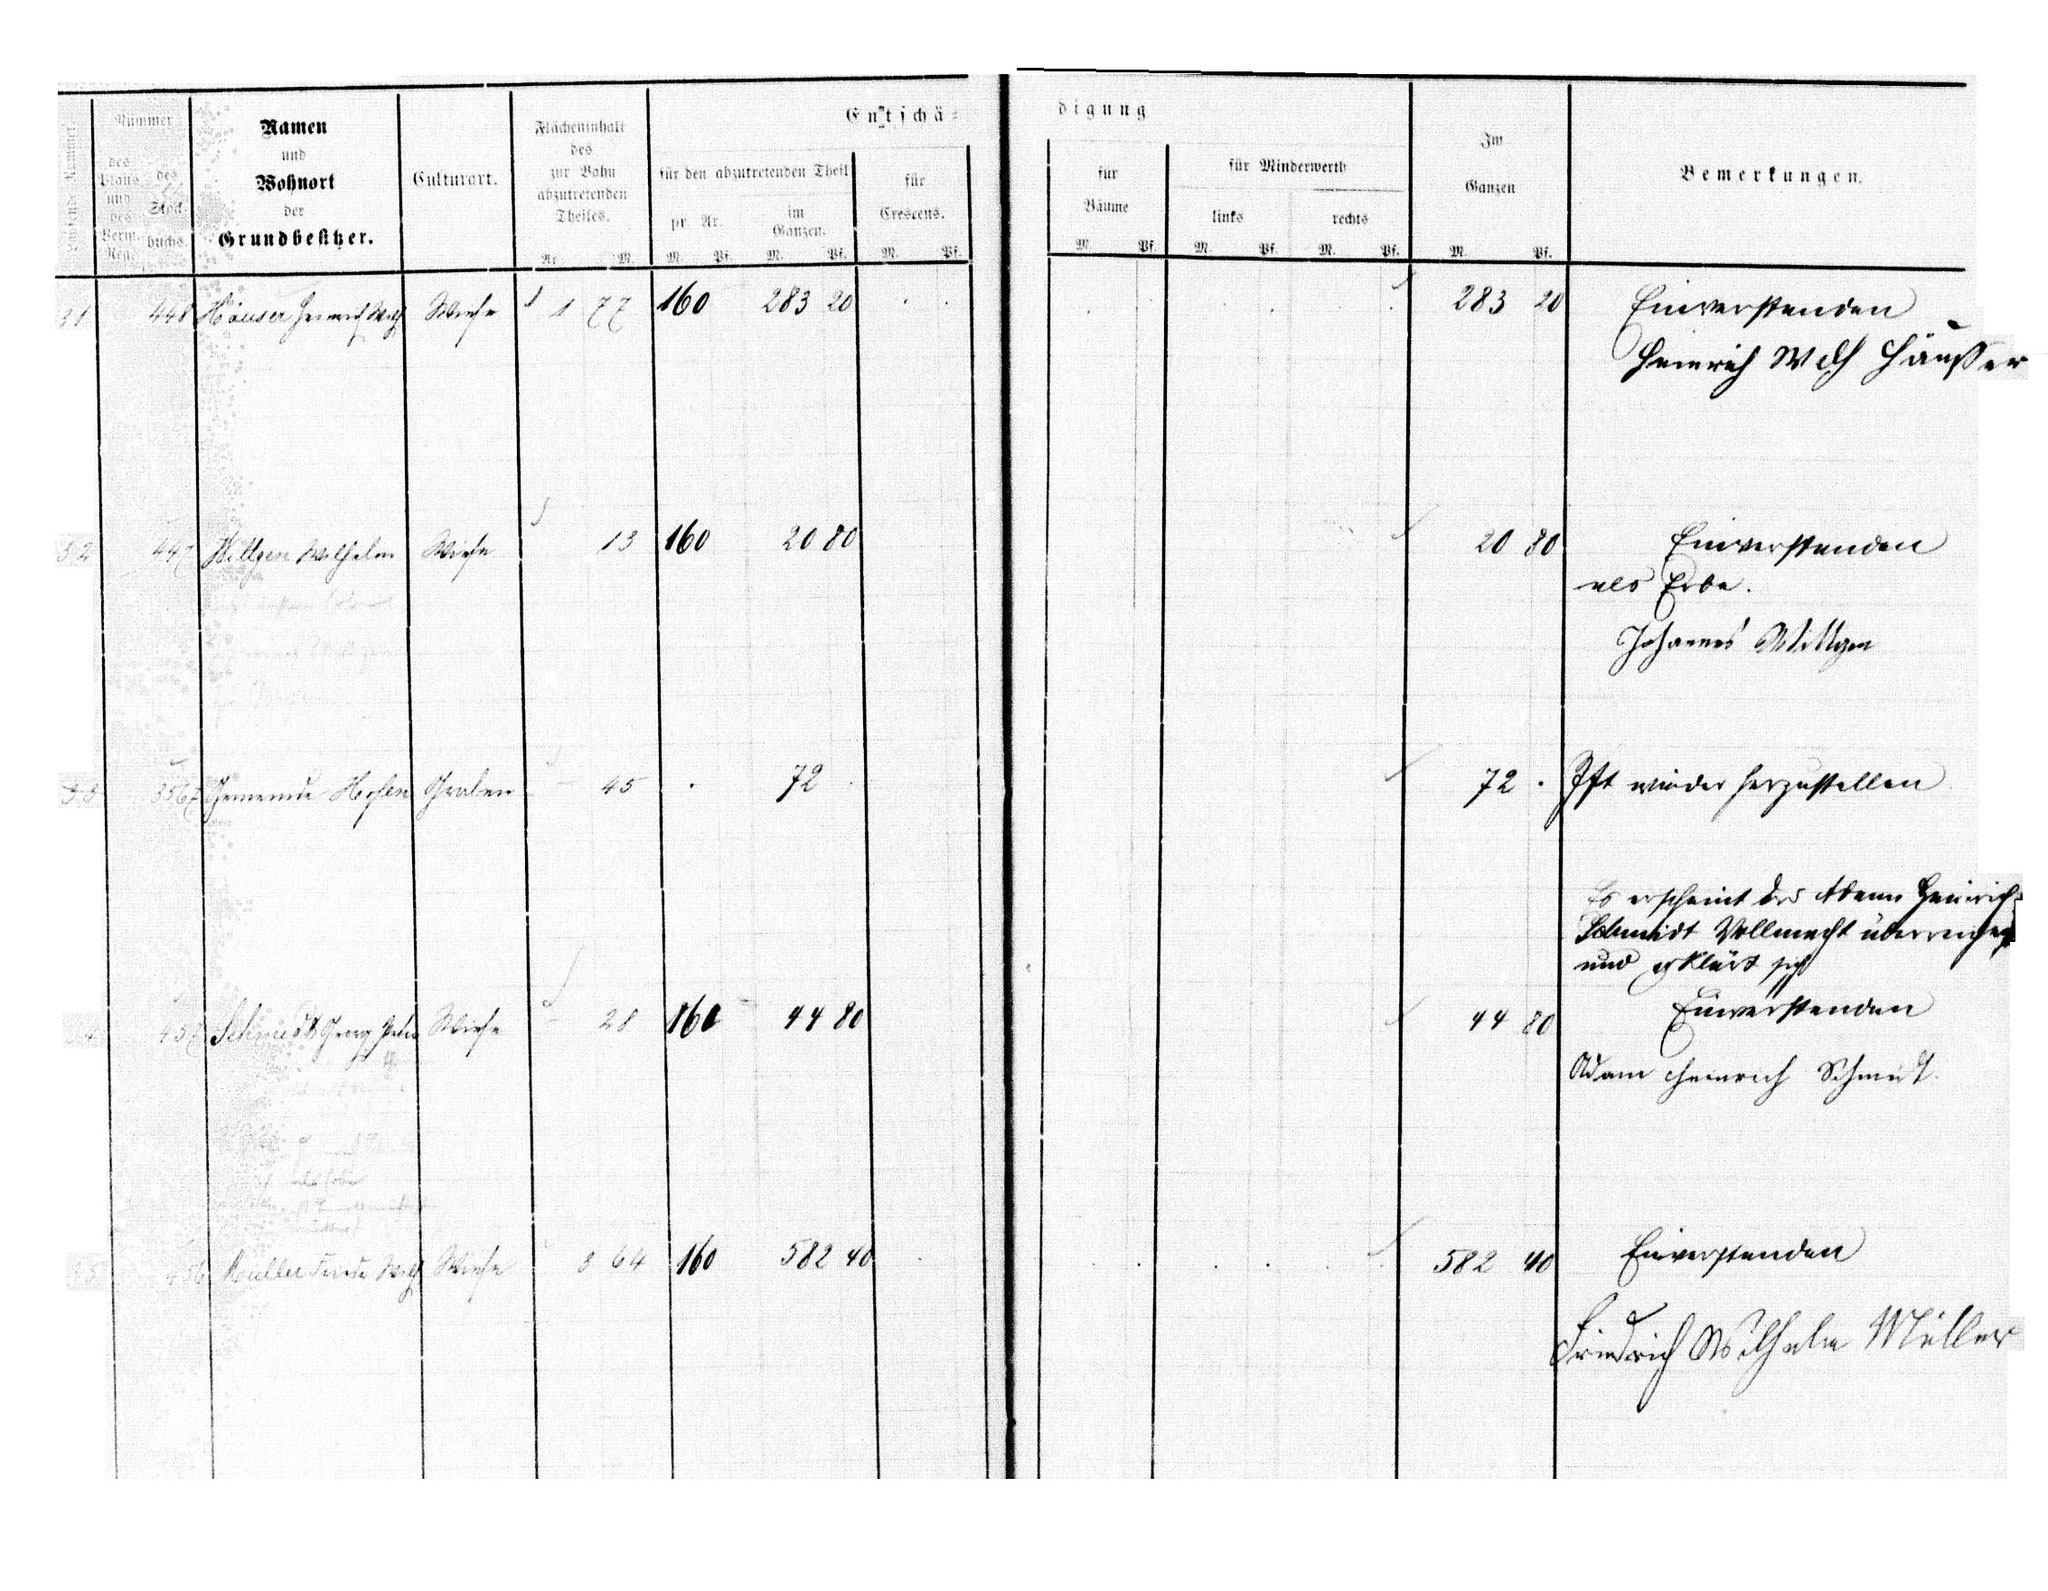 Entschä=
digung
Laufende Nummer.
Nummer
des Plans und des Verm. Reg.
des Stockbuchs.
Namen
und
Wohnort
der
Grundbesitzer.
Culturart.
Flächeninhalt
des
zur Bahn
abzutretenden
Theiles.
Ar. M.
für den abzutretenden Theil
pr. Ar.
im
Ganzen.
M. Pf. M. Pf.
für
Crescens.
M. Pf.
für
Bäume
M. Pf.
für Minderwerth
links rechts
M. Pf. M. Pf.
Im
Ganzen
M. Pf.
Bemerkungen.
448 Häuser Heinrich Wilh Wiese 1 77 160 283 20 283 20 Einverstanden
Heinrich Wilh Häußer
447 Willgen Wilhelm Wiese 13 160 20 80 20 80 Einverstanden
als Erbe.
Johannes Willgen
3567 Gemeinde Hofen Graben 45 72 72 Ist wieder herzustellen
Es erscheint der Adam Heinrich
Schmidt Vollmacht überreichend
und erklärt sich
457 Schmidt Georg Wiese 28 160 44 80 44 80 Einverstanden
Adam Heinrich Schmidt.
456 Müller Friedr Wilh Wiese 3 64 160 582 40 582 40 Einverstanden
Friedrich Wilhelm Müller